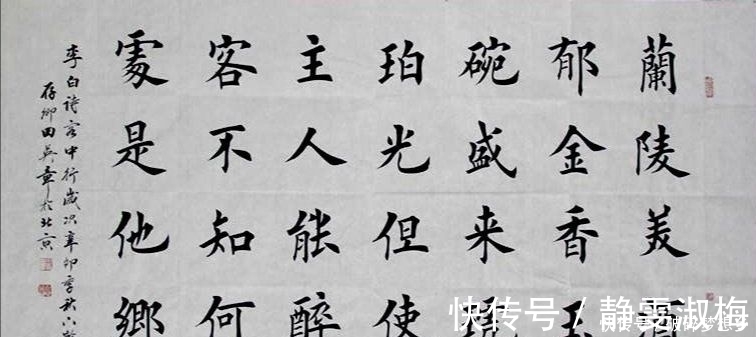 蘭陵美酒
郁金香玉
碗盛来琥
珀光但使
主人能醉
客不知何
處是他鄉
李白诗客中行歲次辛卯季秋
存卿田英章於北京
快传号/静雯淑梅
快传号